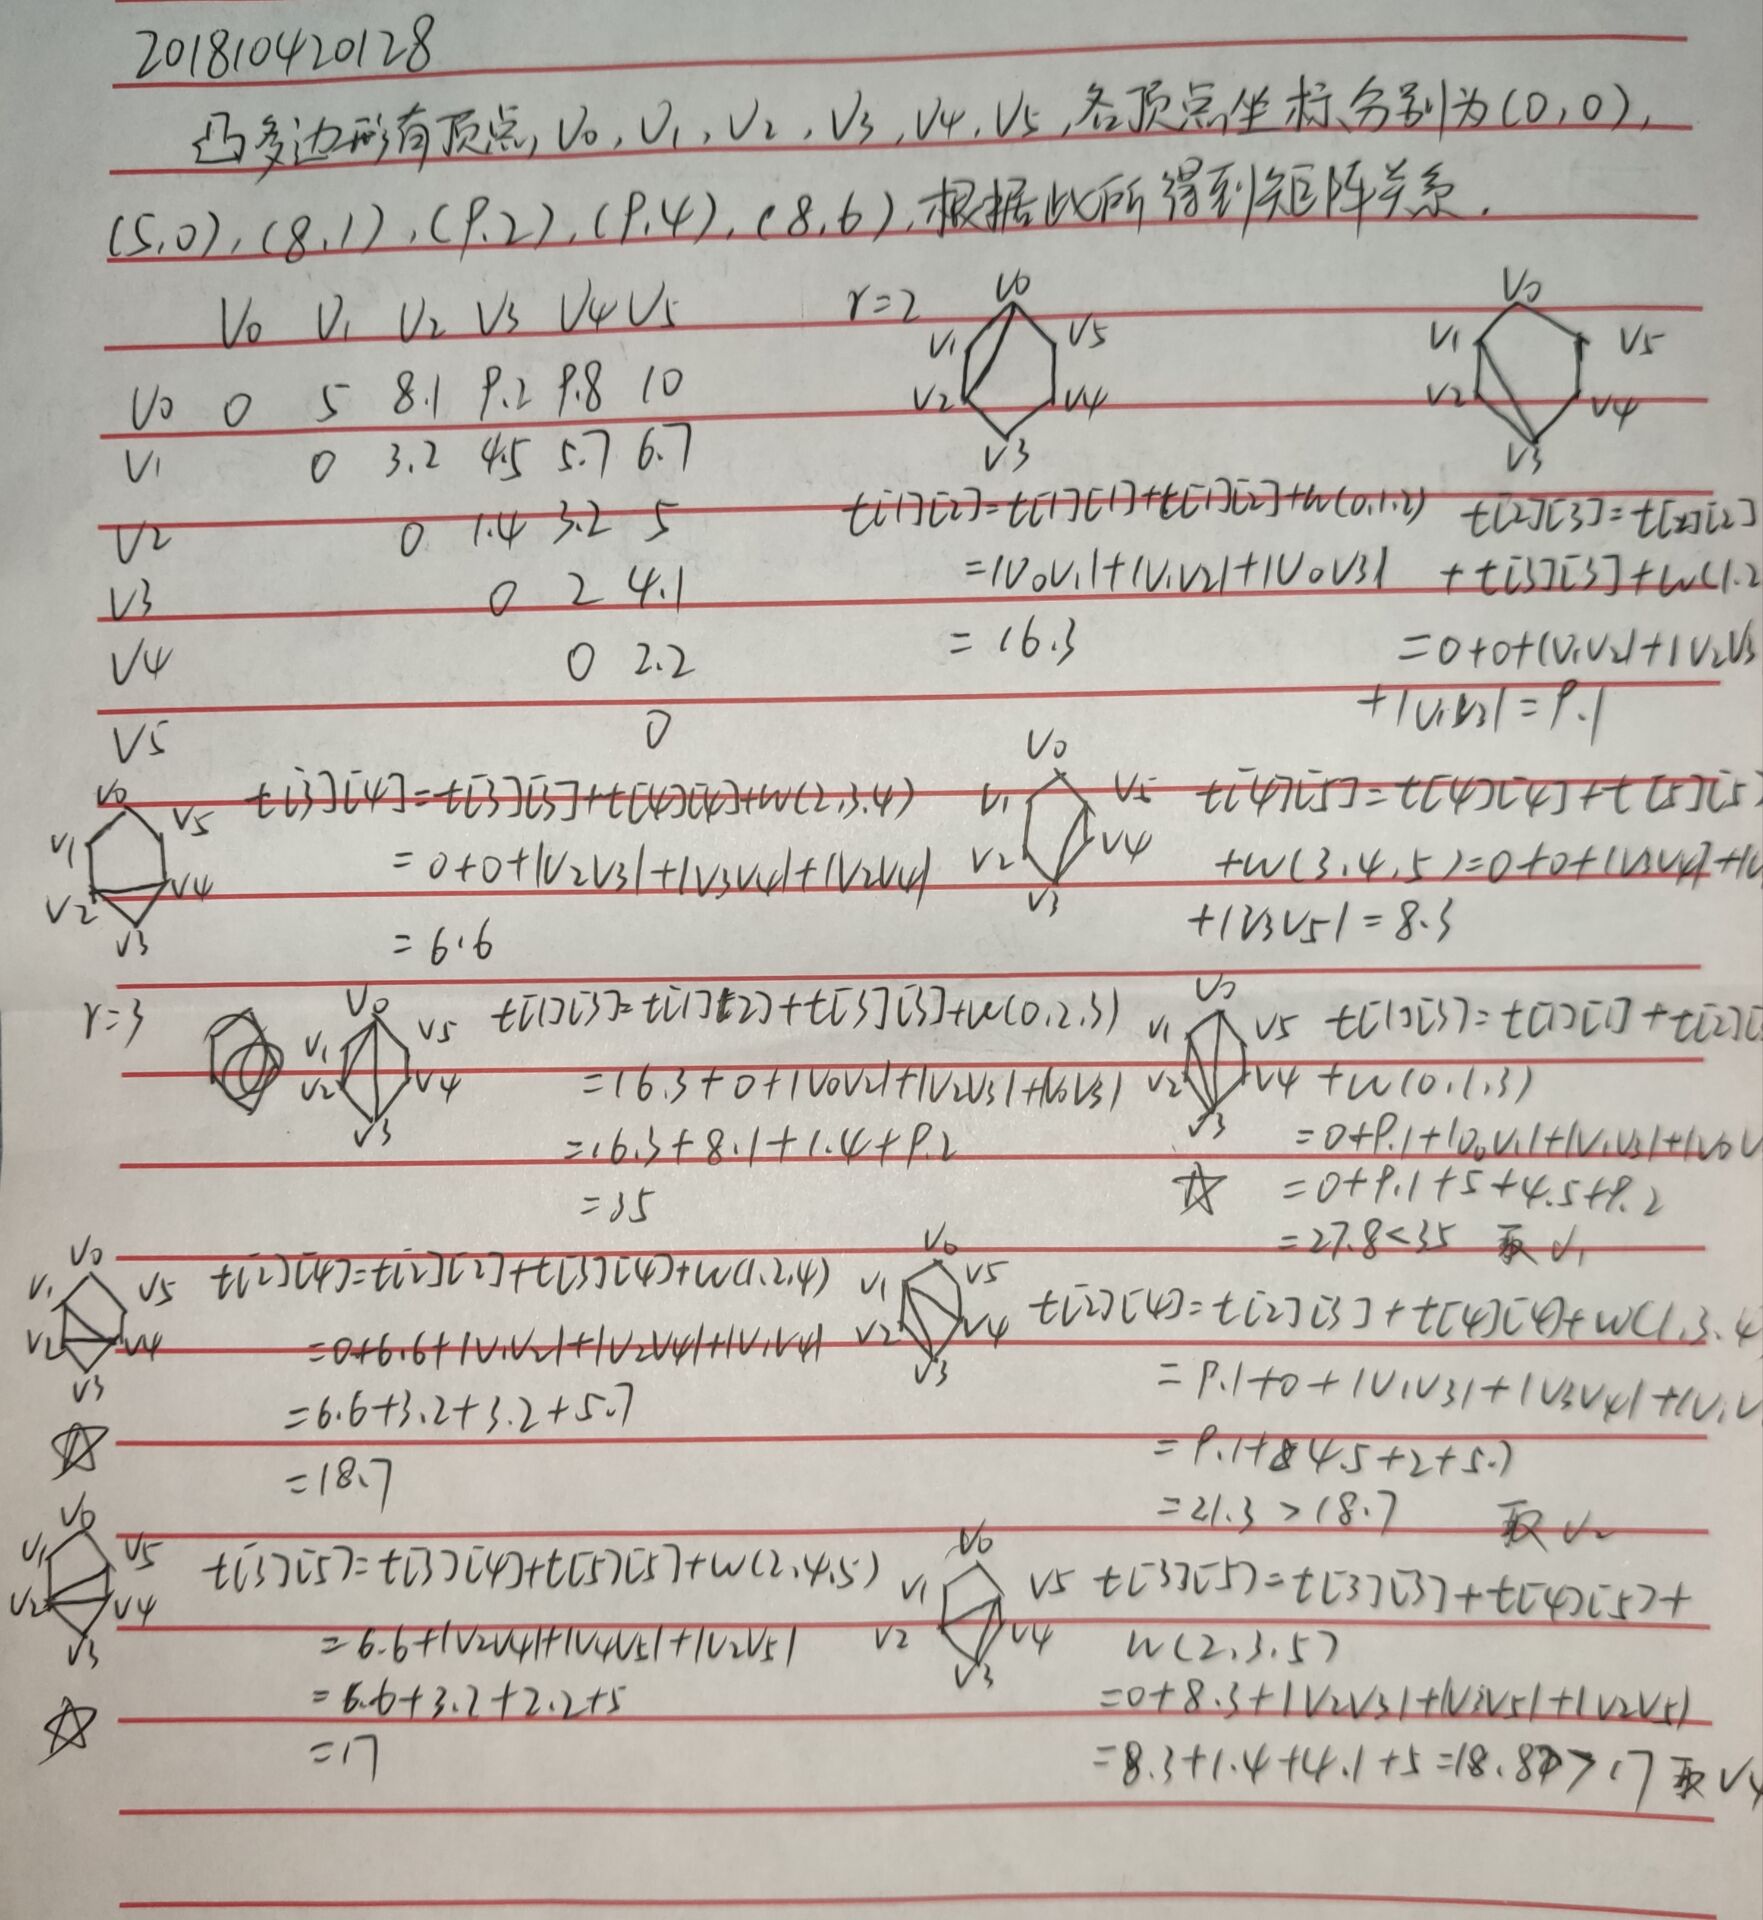 201810420128
凸多边形有顶点,V0,V1,V2,V3,V4,V5,各顶点坐标分别为(0,0),
(5,0),(8,1),(9,2),(9,4),(8,6),根据此所得到矩阵关系.
V0 V1 V2 V3 V4 V5
V0 0 5 8.1 9.2 9.8 10
V1 0 3.2 4.5 5.7 6.7
V2 0 1.4 3.2 5
V3 0 2 4.1
V4 0 2.2
V5 0
r=2
V0
V1 V5
V2 V4
V3
t[1][2]=t[1][1]+t[1][2]+w(0,1,2)
=|V0V1|+|V1V2|+|V0V3|
=16.3
V0
V1 V5
V2 V4
V3
t[2][3]=t[2][2]
+t[3][3]+w(1.2
=0+0+|V1V2|+|V2V3
+|V1V3|=9.1
V0
V1 V5
V2 V4
V3
t[3][4]=t[3][3]+t[4][4]+w(2,3,4)
=0+0+|V2V3|+|V3V4|+|V2V4|
=6.6
V0
V1 V5
V2 V4
V3
t[4][5]=t[4][4]+t[5][5]
+w(3,4,5)=0+0+|V3V4|+|V
+|V3V5|=8.3
r=3
V0
V1 V5
V2 V4
V3
t[1][3]=t[1][2]+t[3][3]+w(0,2,3)
=16.3+0+|V0V2|+|V2V3|+|V0V3|
=16.3+8.1+1.4+9.2
=35
V0
V1 V5
V2 V4
V3
t[1][3]=t[1][1]+t[2][
+w(0,1,3)
=0+9.1+|V0V1|+|V1V3|+|V0V
=0+9.1+5+4.5+9.2
=27.8<35 取V1
V0
V1 V5
V2 V4
V3
t[2][4]=t[2][2]+t[3][4]+w(1,2,4)
=0+6.6+|V1V2|+|V2V4|+|V1V4|
=6.6+3.2+3.2+5.7
=18.7
V0
V1 V5
V2 V4
V3
t[2][4]=t[2][3]+t[4][4]+w(1,3,4
=9.1+0+|V1V3|+|V3V4|+|V1V
=9.1+4.5+2+5.7
=21.3>18.7 取V2
V0
V1 V5
V2 V4
V3
t[3][5]=t[3][4]+t[5][5]+w(2,4,5)
=6.6+|V2V4|+|V4V5|+|V2V5|
=6.6+3.2+2.2+5
=17
V0
V1 V5
V2 V4
V3
t[3][5]=t[3][3]+t[4][5]+
w(2,3,5)
=0+8.3+|V2V3|+|V3V5|+|V2V5|
=8.3+1.4+4.1+5=18.8>17 取V4